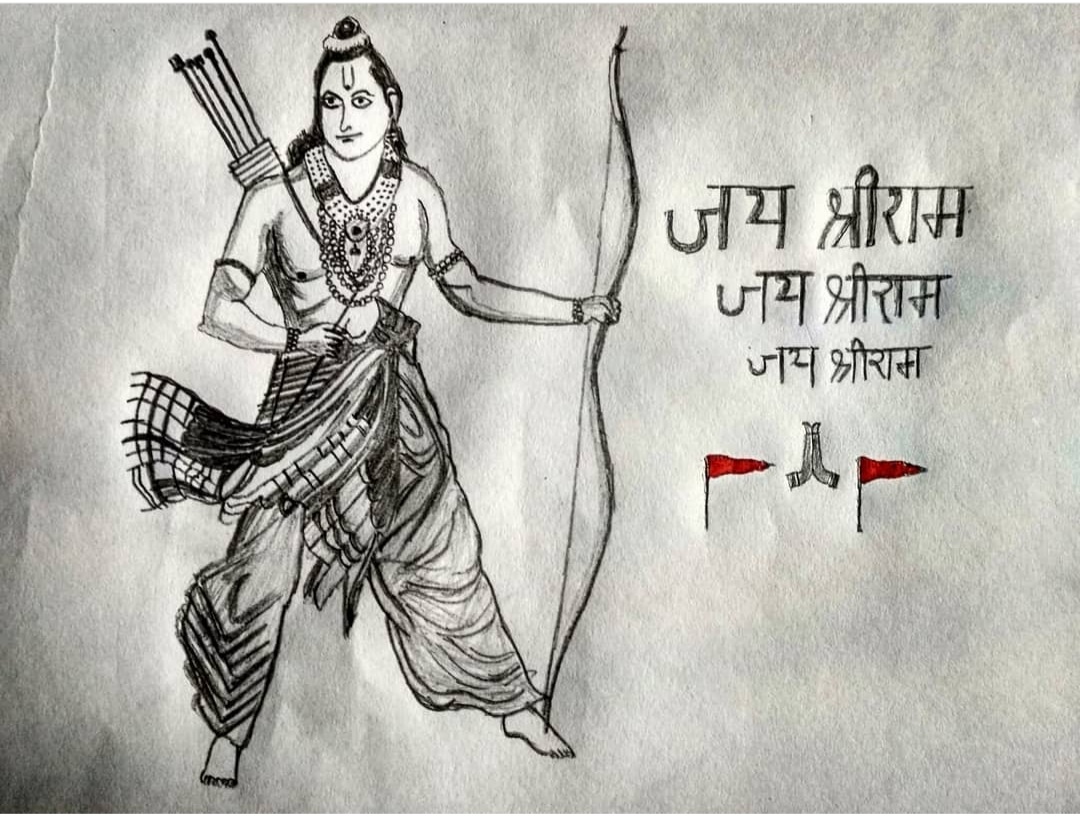 जय श्रीराम
जय श्रीराम
जय श्रीराम